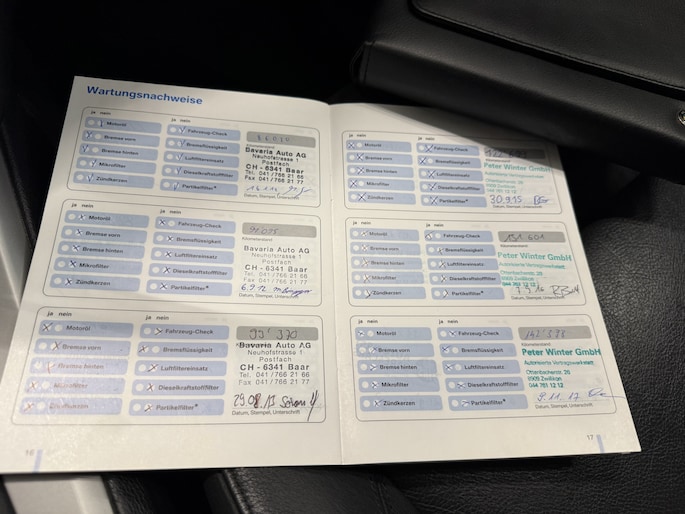 Wartungsnachweise
ja nein
Motoröl
Bremse vorn
Bremse hinten
Mikrofilter
Zündkerzen
Fahrzeug-Check
Bremsflüssigkeit
Luftfiltereinsatz
Dieselkraftstofffilter
Partikelfilter*
Kilometerstand
Bavaria Auto AG
Neuhofstrasse 1
Postfach
CH - 6341 Baar
Tel. 041 / 766 21 66
Fax 041 / 766 21 77
Datum, Stempel, Unterschrift
ja nein
Motoröl
Bremse vorn
Bremse hinten
Mikrofilter
Zündkerzen
Fahrzeug-Check
Bremsflüssigkeit
Luftfiltereinsatz
Dieselkraftstofffilter
Partikelfilter*
Kilometerstand
Bavaria Auto AG
Neuhofstrasse 1
Postfach
CH - 6341 Baar
Tel. 041 / 766 21 66
Fax 041 / 766 21 77
6.9.12
Datum, Stempel, Unterschrift
ja nein
Motoröl
Bremse vorn
Bremse hinten
Mikrofilter
Zündkerzen
Fahrzeug-Check
Bremsflüssigkeit
Luftfiltereinsatz
Dieselkraftstofffilter
Partikelfilter*
99'370
Bavaria Auto AG
Neuhofstrasse 1
Postfach
CH - 6341 Baar
Tel. 041 / 766 21 66
Fax 041 / 766 21 77
29.08.13
Datum, Stempel, Unterschrift
16
ja nein
Motoröl
Bremse vorn
Bremse hinten
Mikrofilter
Zündkerzen
Fahrzeug-Check
Bremsflüssigkeit
Luftfiltereinsatz
Dieselkraftstofffilter
Partikelfilter*
Kilometerstand
Peter Winter GmbH
Autorisierte Vertragswerkstatt
Ottenbacherstr. 26
8909 Zwillikon
044 761 12 12
30.9.15
Datum, Stempel, Unterschrift
ja nein
Motoröl
Bremse vorn
Bremse hinten
Mikrofilter
Zündkerzen
Fahrzeug-Check
Bremsflüssigkeit
Luftfiltereinsatz
Dieselkraftstofffilter
Partikelfilter*
131 601
Kilometerstand
Peter Winter GmbH
Autorisierte Vertragswerkstatt
Ottenbacherstr. 26
8909 Zwillikon
044 761 12 12
Datum, Stempel, Unterschrift
ja nein
Motoröl
Bremse vorn
Bremse hinten
Mikrofilter
Zündkerzen
Fahrzeug-Check
Bremsflüssigkeit
Luftfiltereinsatz
Dieselkraftstofffilter
Partikelfilter*
Kilometerstand
Peter Winter GmbH
Autorisierte Vertragswerkstatt
Ottenbacherstr. 26
8909 Zwillikon
044 761 12 12
9.11.17
Datum, Stempel, Unterschrift
17